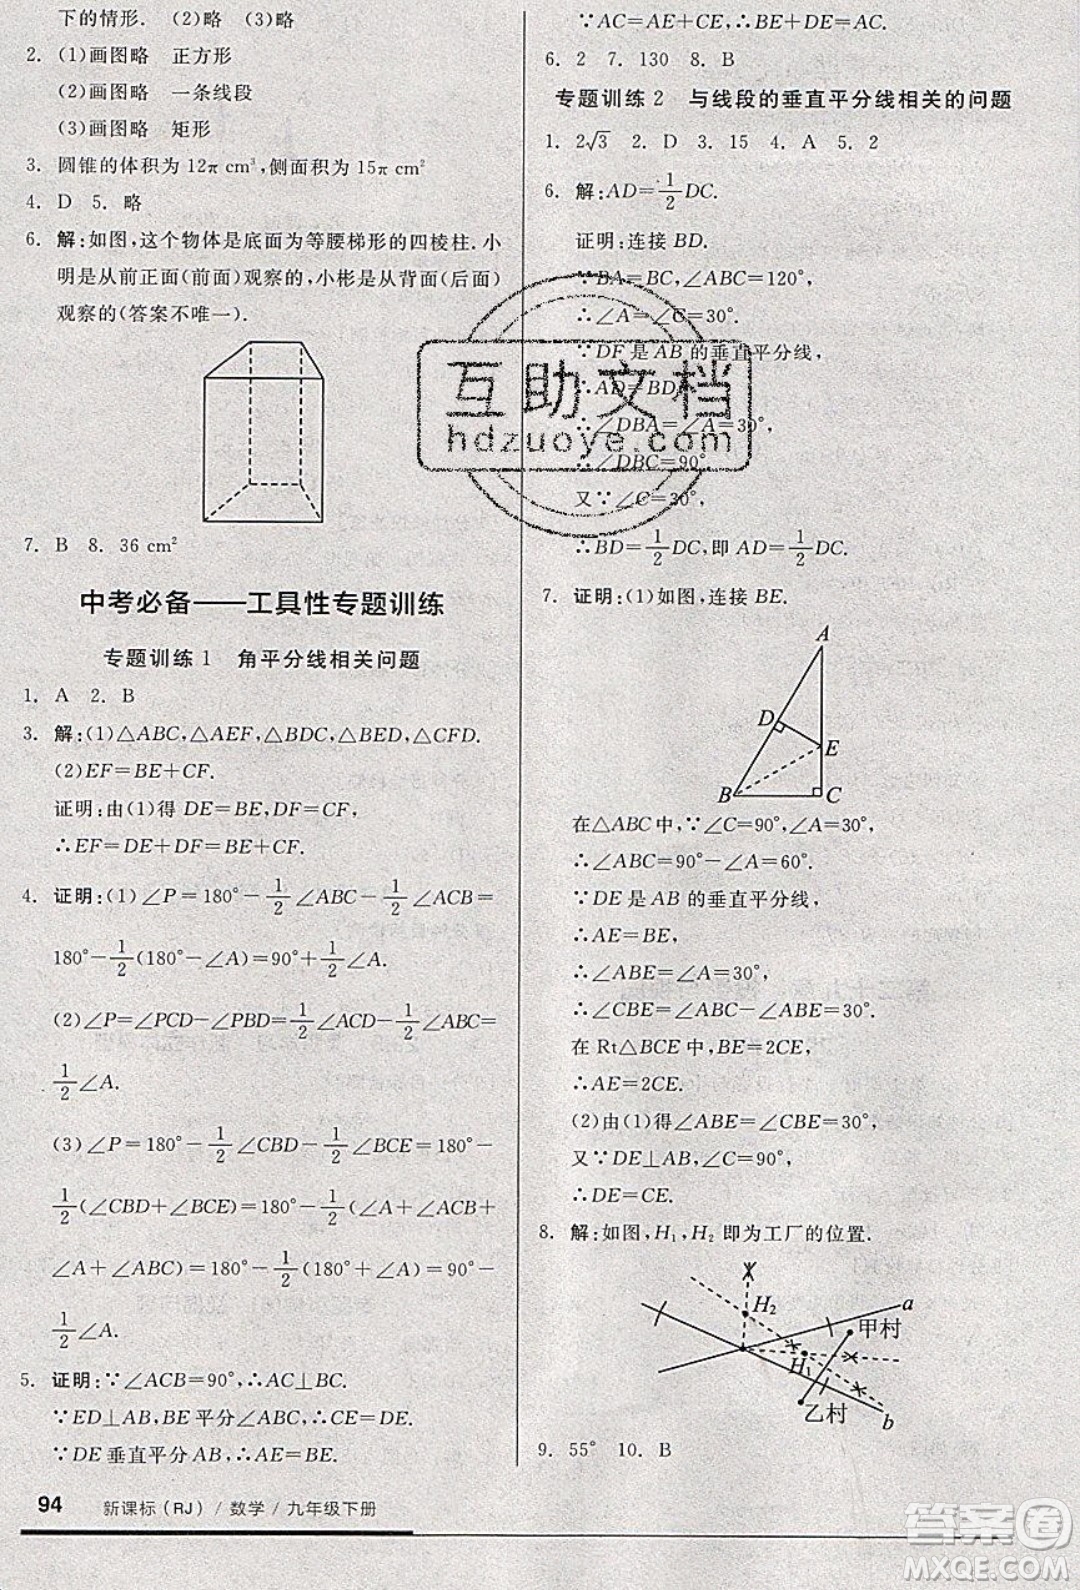 下的情形. (2)略 (3)略
2. (1)画图略 正方形
(2)画图略 一条线段
(3)画图略 矩形
3. 圆锥的体积为 12π cm³,侧面积为 15π cm²
4. D 5. 略
6. 解:如图,这个物体是底面为等腰梯形的四棱柱. 小
明是从前正面(前面)观察的,小彬是从背面(后面)
观察的(答案不唯一).
7. B 8. 36 cm²
中考必备——工具性专题训练
专题训练 1 角平分线相关问题
1. A 2. B
3. 解:(1)△ABC,△AEF,△BDC,△BED,△CFD.
(2)EF=BE+CF.
证明:由(1)得 DE=BE,DF=CF,
∴EF=DE+DF=BE+CF.
4. 证明:(1)∠P=180°-1/2∠ABC-1/2∠ACB=
180°-1/2(180°-∠A)=90°+1/2∠A.
(2)∠P=∠PCD-∠PBD=1/2∠ACD-1/2∠ABC=
1/2∠A.
(3)∠P=180°-1/2∠CBD-1/2∠BCE=180°-
1/2(∠CBD+∠BCE)=180°-1/2(∠A+∠ACB+
∠A+∠ABC)=180°-1/2(180°+∠A)=90°-
1/2∠A.
5. 证明:∵∠ACB=90°,∴AC⊥BC.
∵ED⊥AB,BE平分∠ABC,∴CE=DE.
∵DE垂直平分AB,∴AE=BE.
∵AC=AE+CE,∴AC=BE+DE.
6. 2 7. 130 8. B
专题训练 2 与线段的垂直平分线相关的问题
1. 2√3 2. D 3. 15 4. A 5. 2
6. 解:AD=1/2DC.
证明:连接 BD.
∵BA=BC,∠ABC=120°,
∴∠A=∠C=30°.
∵DF 是 AB 的垂直平分线,
∴AD=BD,
∴∠DBA=∠A=30°,
∴∠DBC=90°.
又∵∠C=30°,
∴BD=1/2DC,即 AD=1/2DC.
7. 证明:(1)如图,连接 BE.
A
D
E
B
C
在△ABC中,∵∠C=90°,∠A=30°,
∴∠ABC=90°-∠A=60°.
∵DE 是 AB 的垂直平分线,
∴AE=BE,
∴∠ABE=∠A=30°,
∴∠CBE=∠ABC-∠ABE=30°.
在 Rt△BCE中,BE=2CE,
∴AE=2CE.
(2)由(1)得∠ABE=∠CBE=30°,
又∵DE⊥AB,∠C=90°,
∴DE=CE.
8. 解:如图,H₁,H₂ 即为工厂的位置.
H₂
a
甲村
H₁
乙村
b
9. 55° 10. B
94 新课标(RJ)/数学/九年级下册
互助文档
hdzuoye.com
答案圈
MXQE.COM